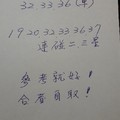 32 33 36 (車)
19 20 32 33 36 37
連碰二三星
參考就好！
合看自取！